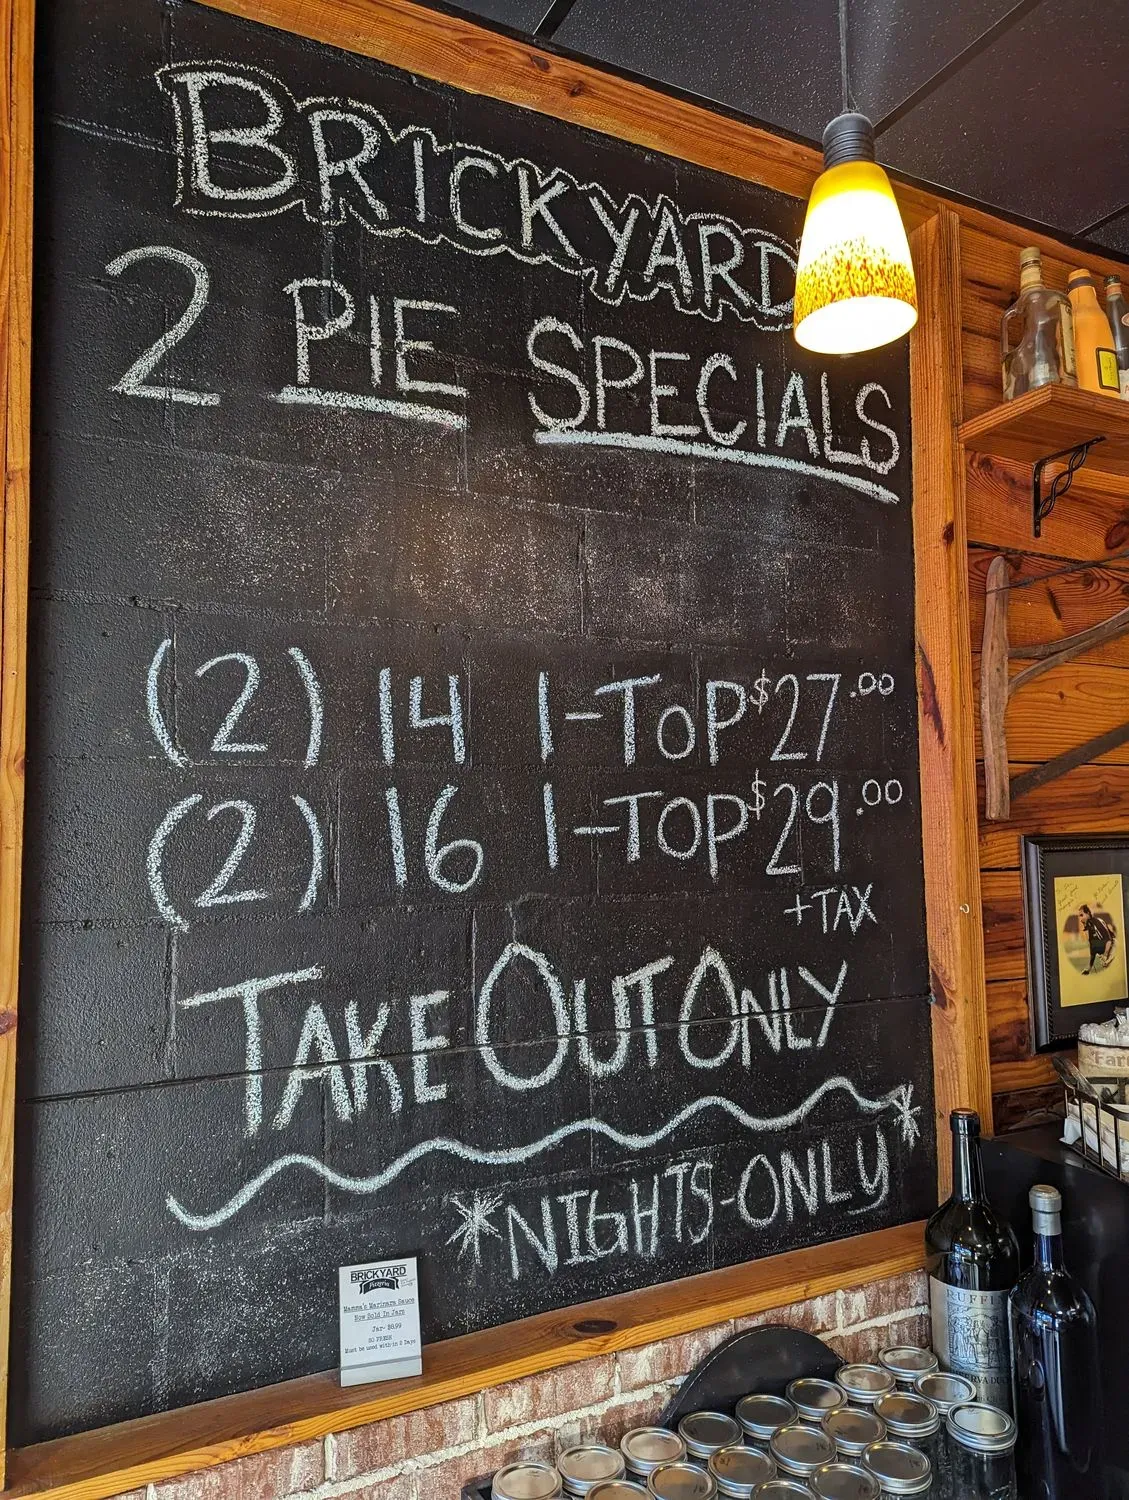 BRICKYARD
2 PIE SPECIALS
(2) 14 1-TOP $27.00
(2) 16 1-TOP $29.00
+TAX
TAKE OUT ONLY
*NIGHTS-ONLY*
BRICKYARD
Mamma's Marinara Sauce
Now Sold In Jars
Jar- $8.99
SO FRESH
Must be used with in 2 Days
RUFFI